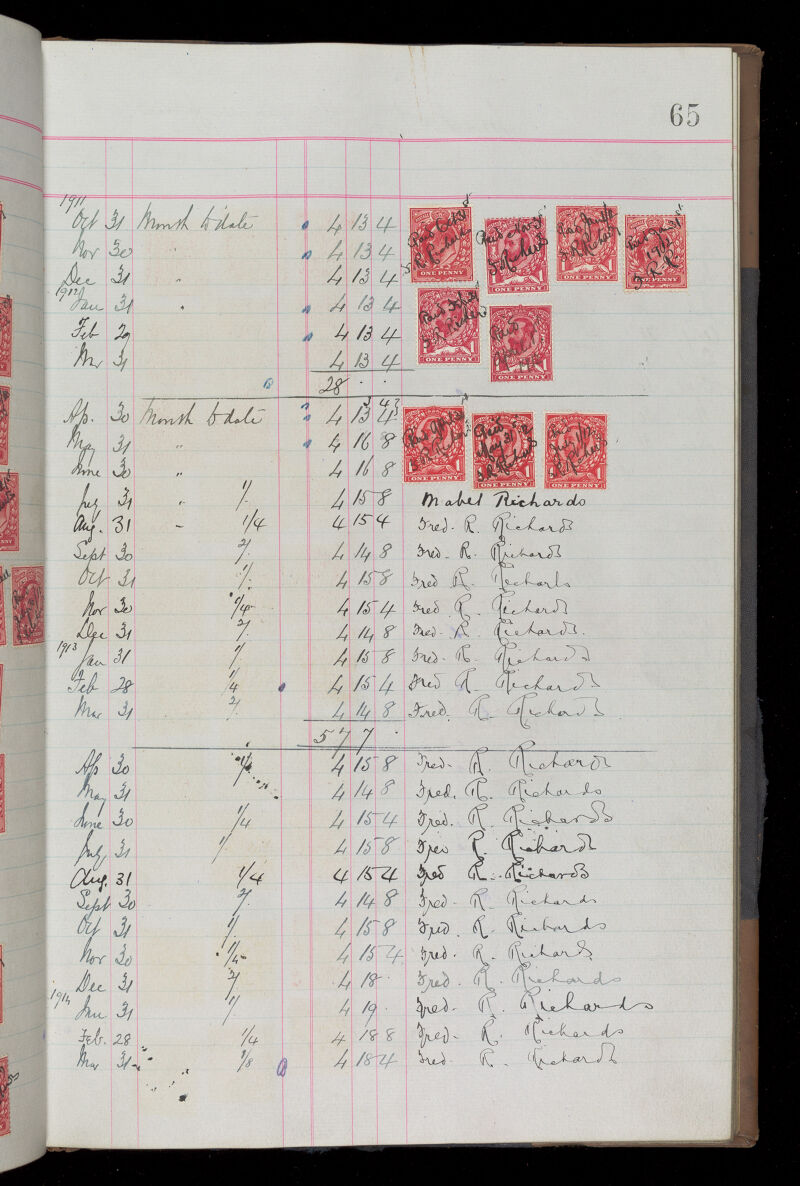 65
1911
Oct 31 Month to date 4 13 4
Nov 30 " 4 13 4
Dec 31 " 4 13 4
1912
Jan 31 " 4 13 4
Feb 29 4 13 4
Mr 31 4 13 4
28 . .
ONE PENNY
ONE PENNY
ONE PENNY
ONE PENNY
ONE PENNY
ONE PENNY
Ap. 30 Month to date 4 13 4
May 31 " 4 16 8
June 30 " 4 16 8
ONE PENNY
ONE PENNY
ONE PENNY
July 31 " 1/. 4 15 8 Mabel Richards
Aug. 31 " 1/4 4 15 4 Fred. R. Richards
Sept 30 2/. 4 14 8 Fred. R. Richards
Oct 31 1/. 4 15 8 Fred R. Richards
Nov 30 1/4 4 15 4 Fred R. Richards
Dec 31 2/. 4 14 8 Fred. R. Richards.
1913
Jan 31 1/ 4 15 8 Fred. R. Richards
Feb 28 1/4 4 15 4 Fred R. Richards
Mar 31 2/. 4 14 8 Fred. R. Richards
57 7 .
Ap 30 1/. 4 15 8 Fred. R. Richards
May 31 4 14 8 Fred. R. Richards
June 30 1/4 4 15 4 Fred. R. Richards
July 31 1/. 4 15 8 Fred R. Richards
Aug. 31 1/4 4 15 4 Fred R. Richards
Sept 30 2/. 4 14 8 Fred. R. Richards
Oct 31 1/ 4 15 8 Fred. R. Richards
Nov 30 1/4 4 15 4 Fred. R. Richards
Dec 31 2/. 4 18 . Fred. R. Richards
1914
Jan 31 1/. 4 19 . Fred. R. Richards
Feb. 28 1/4 4 18 8 Fred. R. Richards
Mar 31 1/8 4 18 4 Fred. R. Richards